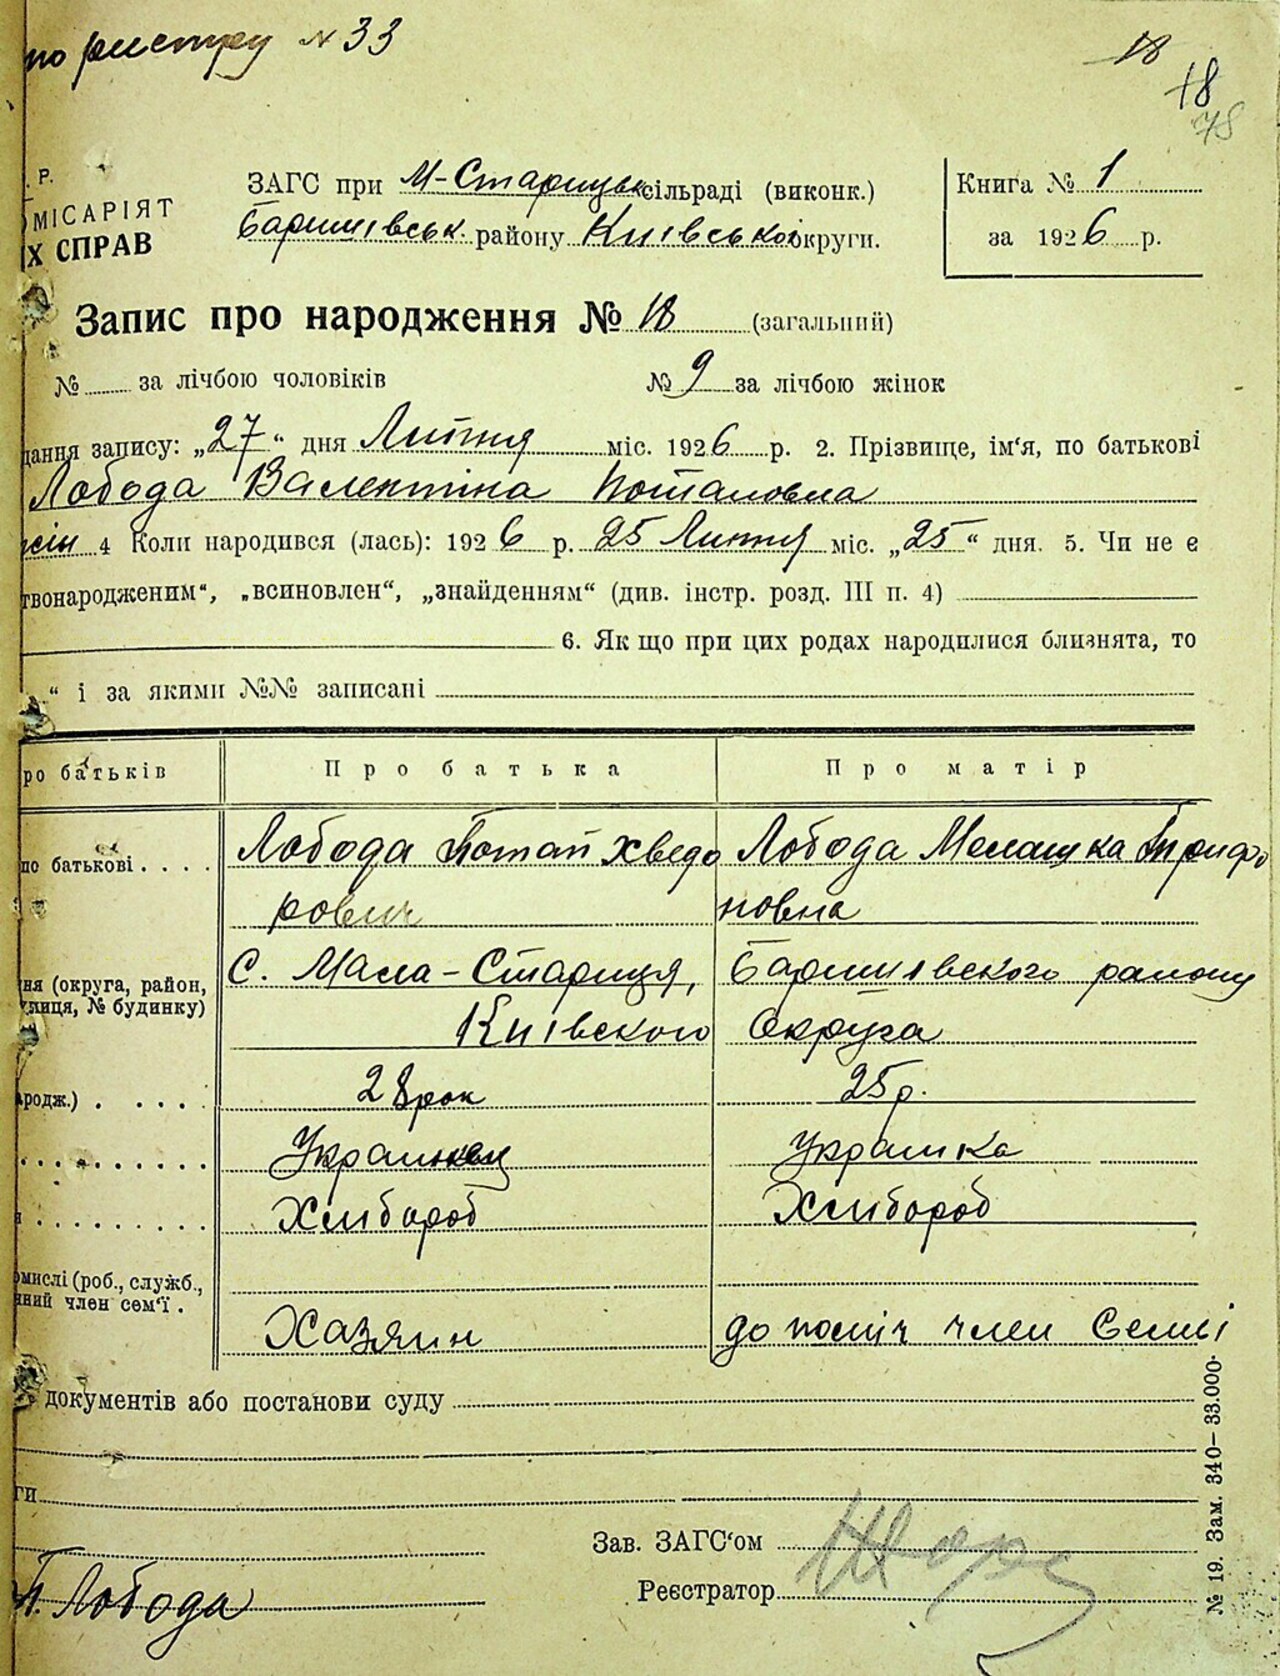 по риєстру N 33
18
18
78
. Р.
ОМІСАРІЯТ
ИХ СПРАВ
ЗАГС при М-Старицьк сільраді (виконк.)
Баришівськ. району Київської округи.
Книга № 1
за 1926 р.
Запис про народження № 18 (загальний)
№ за лічбою чоловіків
№ 9 за лічбою жінок
дання запису: „27“ дня Лютня міс. 1926 р. 2. Прізвище, ім‘я, по батькові
Лобода Валентіна Потаповна
4 Коли народився (лась): 1926 р. 25 Лютня міс. „25“ дня. 5. Чи не є
твонародженим“, „всиновлен“, „знайденням“ (див. інстр. розд. III п. 4)
6. Як що при цих родах народилися близнята, то
“ і за якими №№ записані
ро батьків
Про батька
Про матір
по батькові . . . .
Лобода Потап Хведо
Лобода Мелашка Трифо
рович
новна
ня (округа, район,
улиця, № будинку)
С. Мала-Стариця,
Баришівского району
Київского
Округа
ародж.) . . . . .
28 рок
25 р.
Украинец
Украинка
Хлибороб
Хлибороб
омислі (роб., служб.,
нний член сем‘ї .
Хазяин
до поміч член Семьі
документів або постанови суду
ги
Зав. ЗАГС‘ом
Реєстратор
П. Лобода
№ 19. Зам. 340—33.000.